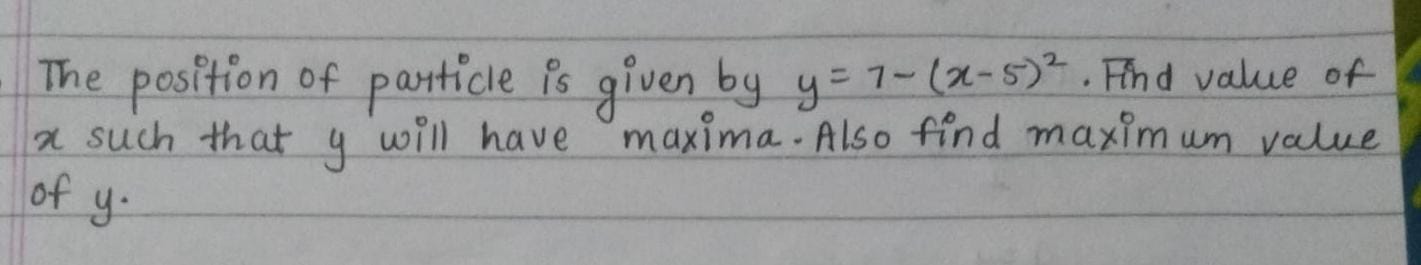 The position of particle is given by y = 7 - (x-5)². Find value of
x such that y will have maxima. Also find maximum value
of y.